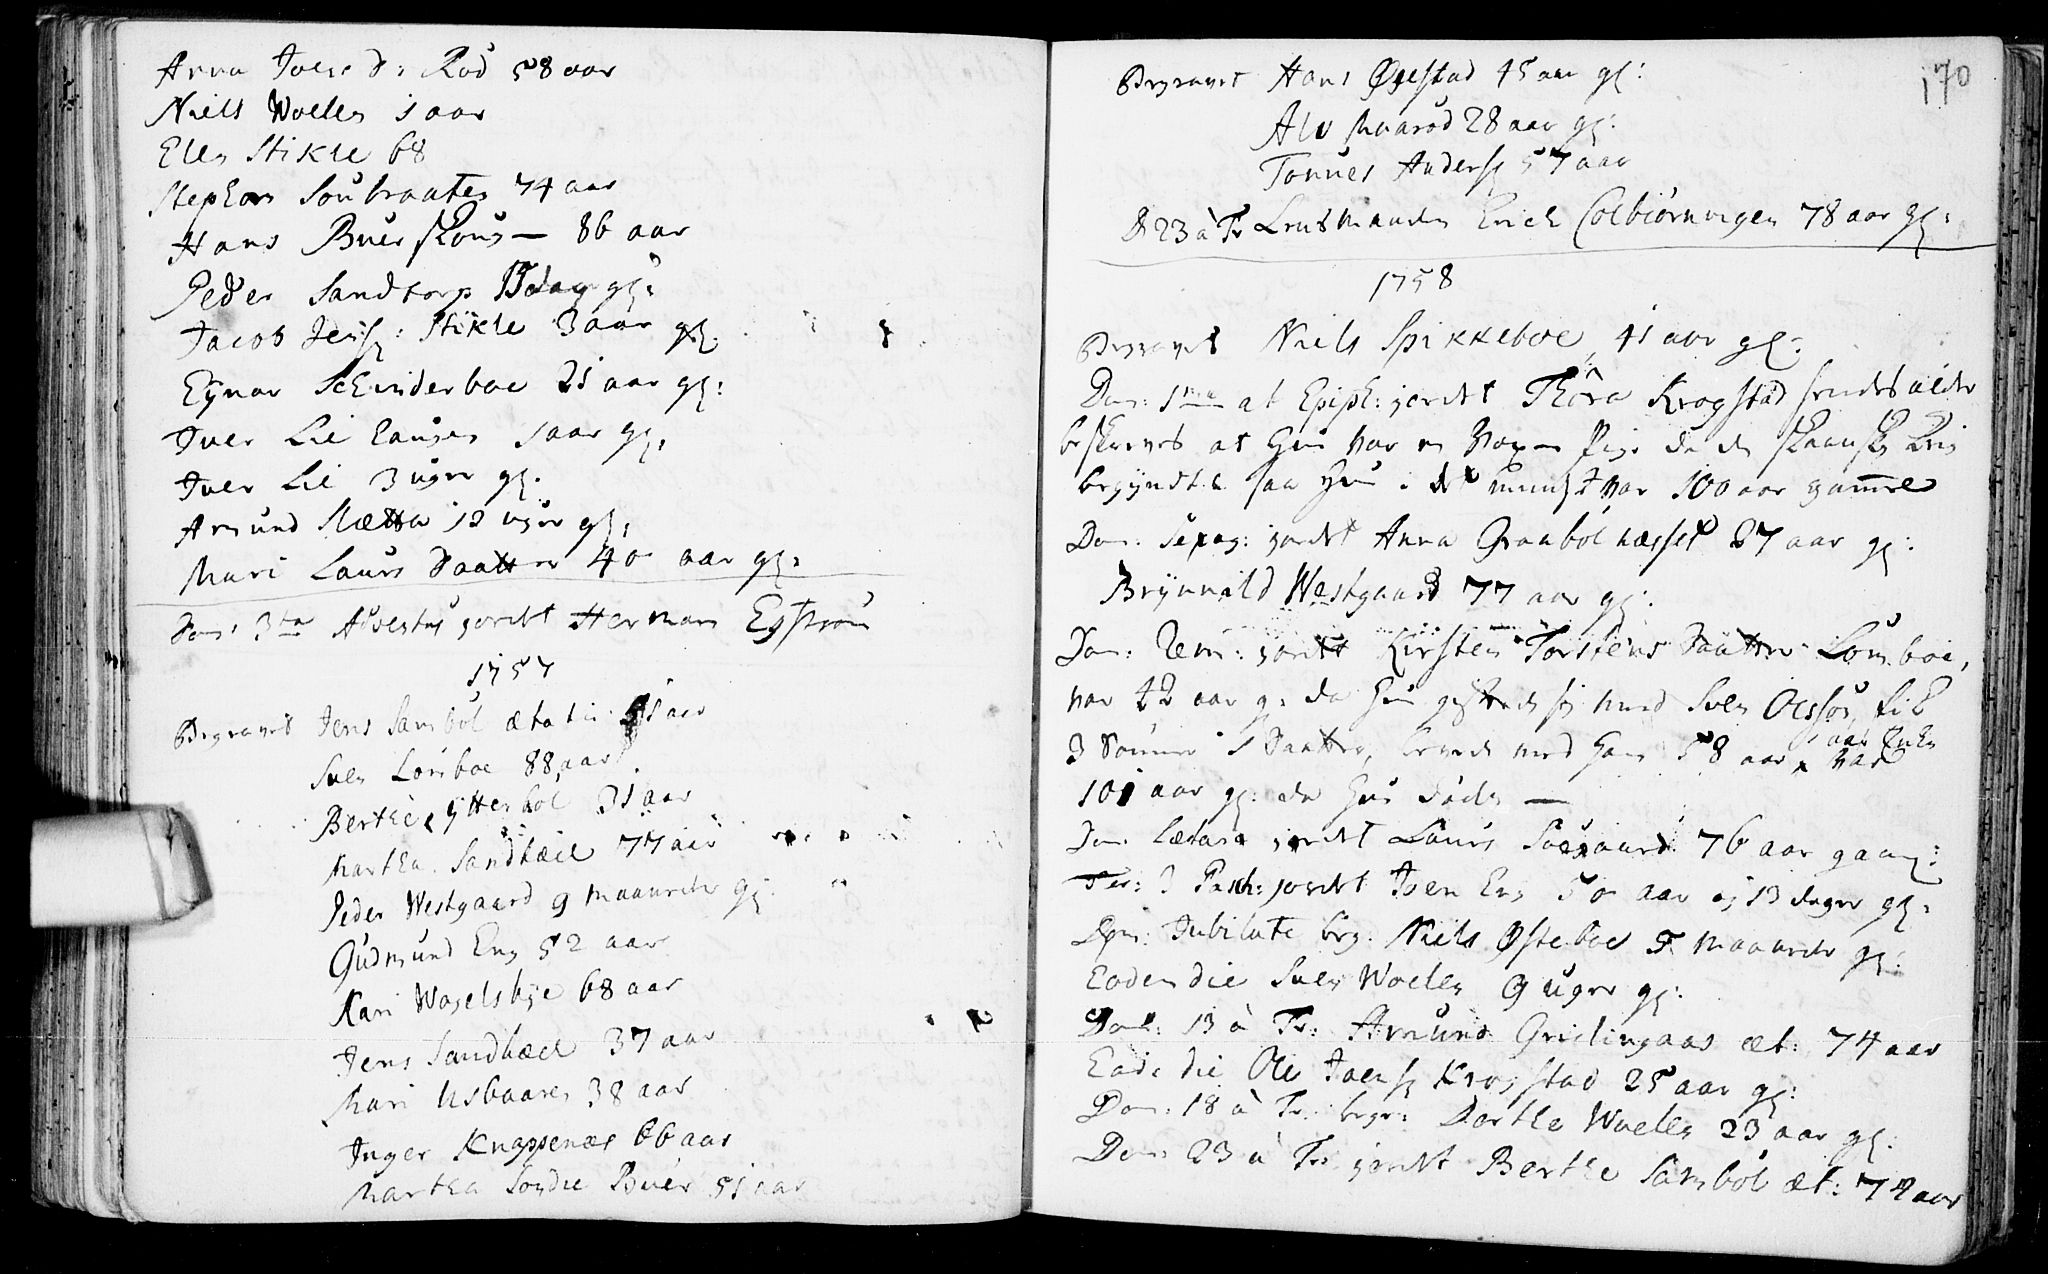 Anna Joens D: Rød 58 aar
Niels Woelen 1 aar
Elen Stikle 68
Stephan Soubraaten 74 aar
Hans Buer skous — 86 aar
Peder Sandtorp 15 dag gl:
Jacob Jensø: Stikle 3 aar gl.
Eÿnar Schinderboe 21 aar gl:
Iver Lie 1 aar gl:
Iver Lie 3 uger gl.
Amund Slætta 12 uger gl:
Mari Laurs Daatter 40 aar gl:
Dom: 3tia Adventus jordet Herman
1757
Begravet Jens Sambøl ætatis 1 aar
Sven Lömboe 88 aar
Berthe Ytterbøl 31 aar
Martha Sandbæck 77 aar
Peder Westgaard 9 maaneder gl:
Gudmund Eng 52 aar
Kari Wogelsbye 68 aar
Jens Sandbæck 37 aar
Mari Usbaaren 38 aar
Inger Knappenæs 66 aar
Martha Søndre Buer 51 aar
170
Begravet Hans Øgestad 45 aar gl:
Alv Maarød 28 aar gl:
Tønnes Anders: 57 aar
D 23 à Tr Lensmanden Erich Colbiörnvigen 78 aar gl:
1758
Begravet Niels Spikkeboe 41 aar gl:
Dom: 1ma at Epiph: jordet Thöra Krogstad hendes alder
beskreves at hun var en Pige da den
begyndte saa hun i det mindste var 100 aar gammel
Dom: Sexag: jordet Anna Graabölnæsset 27 aar gl:
Brynnild Westgaard 77 aar gl:
Dom: Rem: jordet Kirsten Torstens Daatter Lömboe,
var 42 aar g: da hun med Sven Olssøn, fik
3 Sønner 1 Daatter, levede med ham 58 aar, var
aar Enke
101 aar gl: da hun døde —
Dom Lætare jordet Laurs 76 aar gaml:
Fer: 3 Pasch: jordet Joen Eng 50 aar og 13 dager gl:
Dom: Jubilate beg: Niels Østeboe maaneder gl:
Eodem die Sven Woelen 9 uger gl:
Dom: 13 à Tr: Amund Gridlingaas æt: 74 aar
Eod: die Ole Joens: Krogstad 25 aar gl:
Dom: 18 à Tr: begr: Dorthe Woelen 23 aar gl:
Dom: 23 à Tr: jordet Berthe Sambøl æt: 74 aar